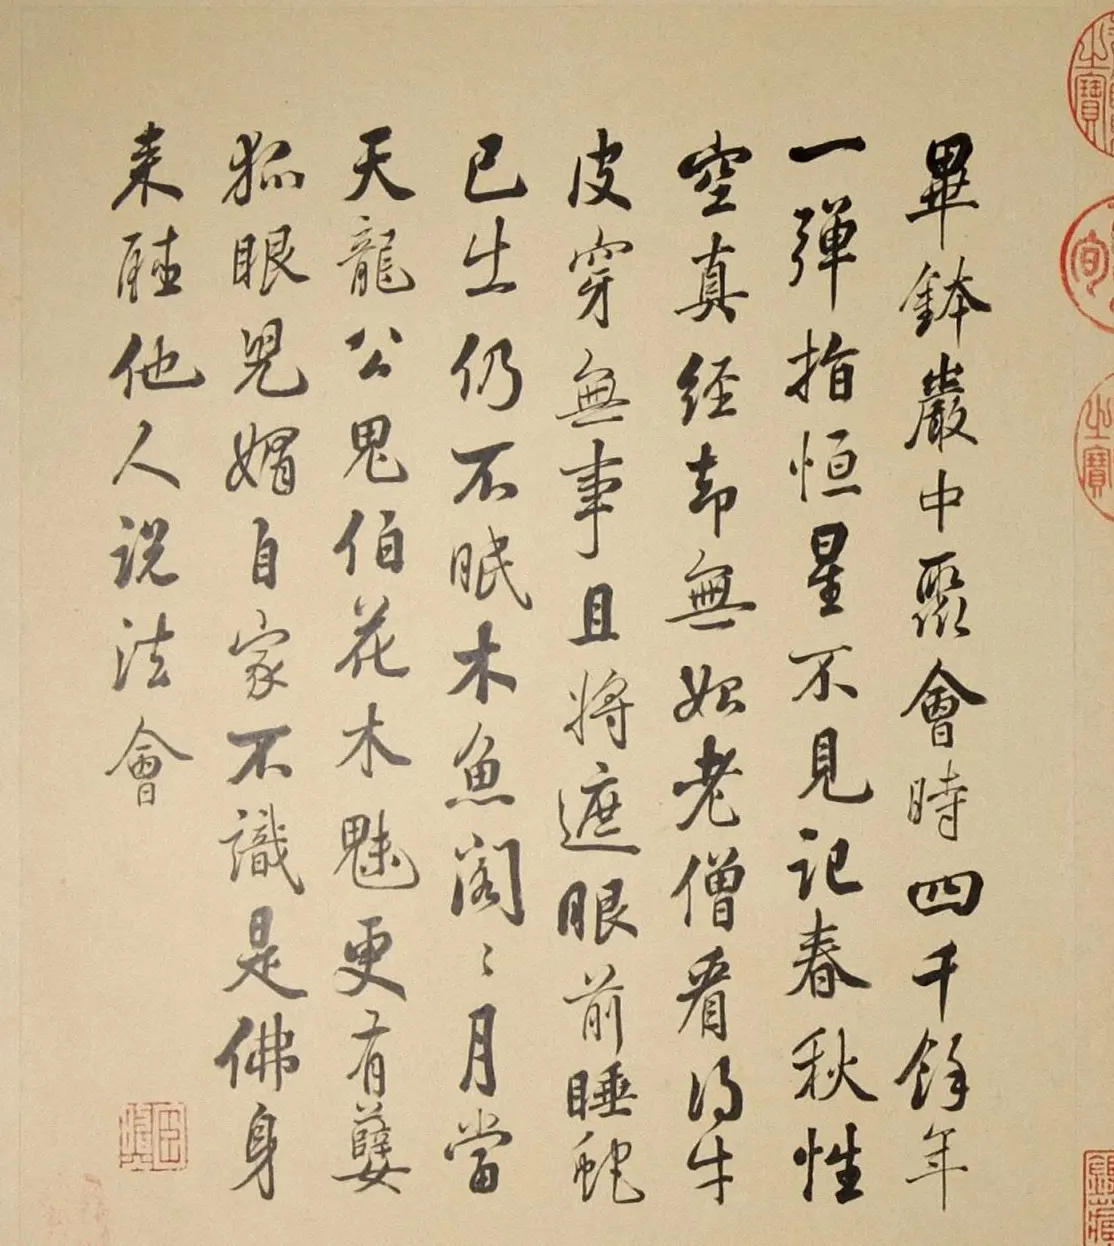 畢鉢巖中聚會時四千餘年
一彈指恒星不見記春秋性
空真経却無如老僧看得牛
皮穿無事且將遮眼前睡蛇
已生仍不眠木魚閣〻月當
天龍公鬼伯花木魅更有孽
狐眼兒媚自家不識是佛身
来聽他人説法會
之寶
之寶